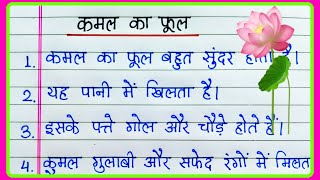 कमल का फूल
1. कमल का फूल बहुत सुंदर होता है।
2. यह पानी में खिलता है।
3. इसके पत्ते गोल और चौड़े होते हैं।
4. कमल गुलाबी और सफेद रंगों में मिलत